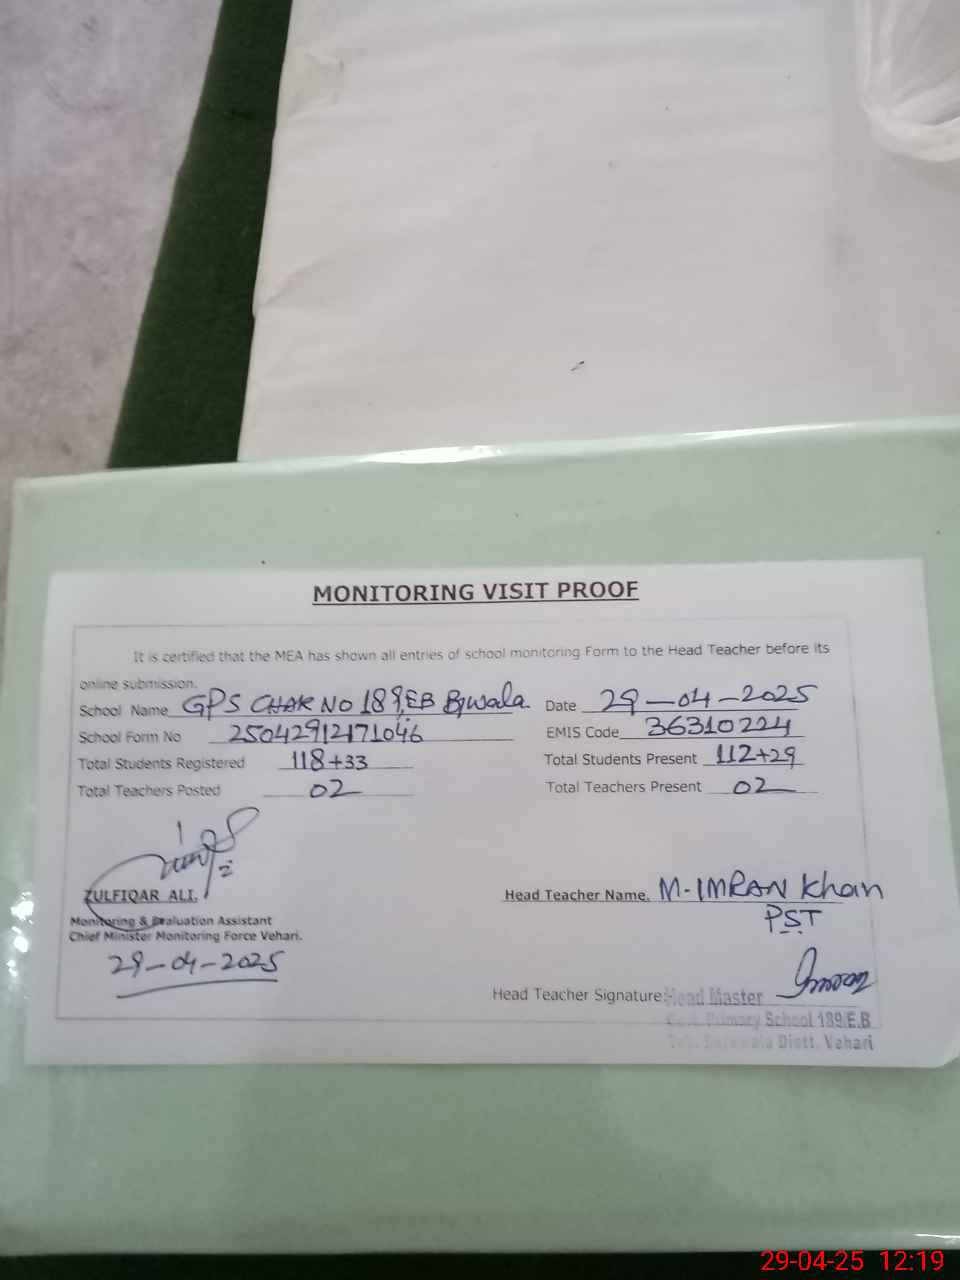 MONITORING VISIT PROOF
It is certified that the MEA has shown all entries of school monitoring Form to the Head Teacher before its
online submission.
School Name GPS CHAK NO 189,EB Bjwala. Date 29-04-2025
School Form No 25042912171046 EMIS Code 36310224
Total Students Registered 118+33 Total Students Present 112+29
Total Teachers Posted 02 Total Teachers Present 02
ZULFIQAR ALI.
Monitoring & Evaluation Assistant
Chief Minister Monitoring Force Vehari.
29-04-2025
Head Teacher Name. M-IMRAN Khan
PST
Head Teacher Signature: Head Master
Govt. Primary School 189/E.B
Distt. Vehari
29-04-25 12:19